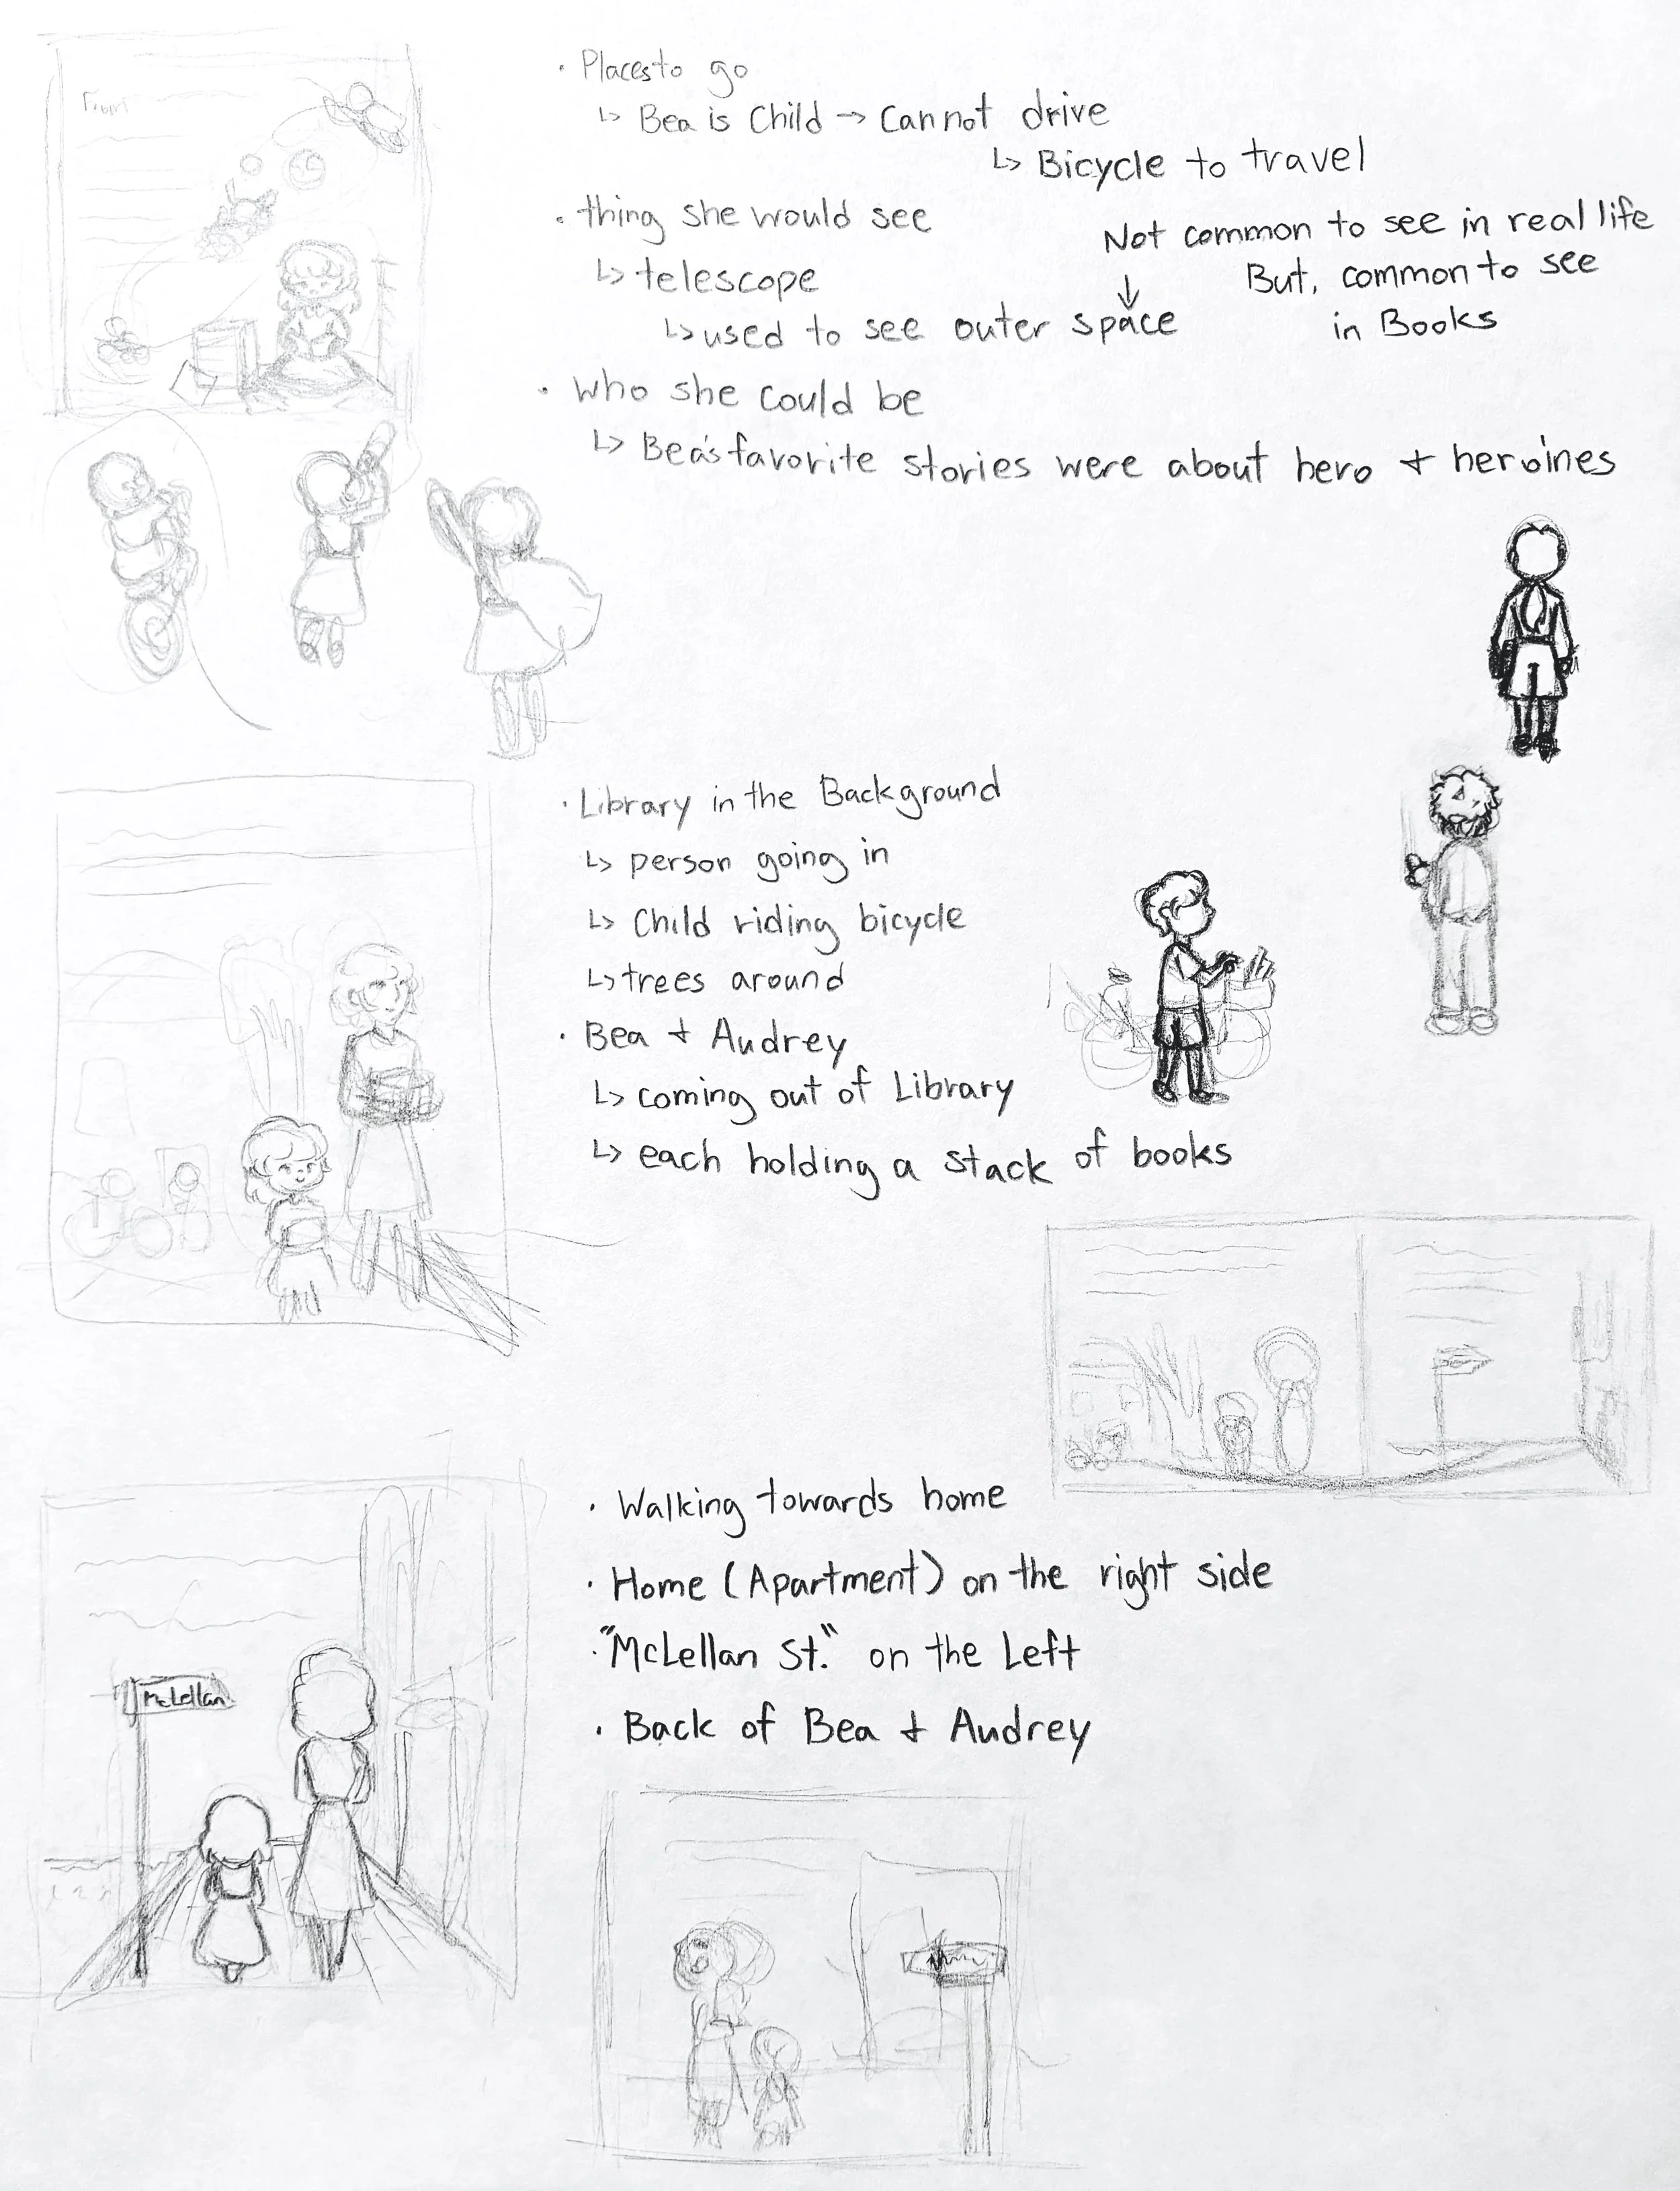 From
· Places to go
↳ Bea is Child → Cannot drive
↳ Bicycle to travel
· thing she would see
↳ telescope
↳ used to see outer space
Not common to see in real life
↓ But, common to see
in Books
· Who she could be
↳ Bea's favorite stories were about hero + heroines
· Library in the Background
↳ person going in
↳ Child riding bicycle
↳ trees around
· Bea + Audrey
↳ coming out of Library
↳ each holding a stack of books
· Walking towards home
· Home (Apartment) on the right side
· "McLellan St." on the Left
· Back of Bea + Audrey
McLellan